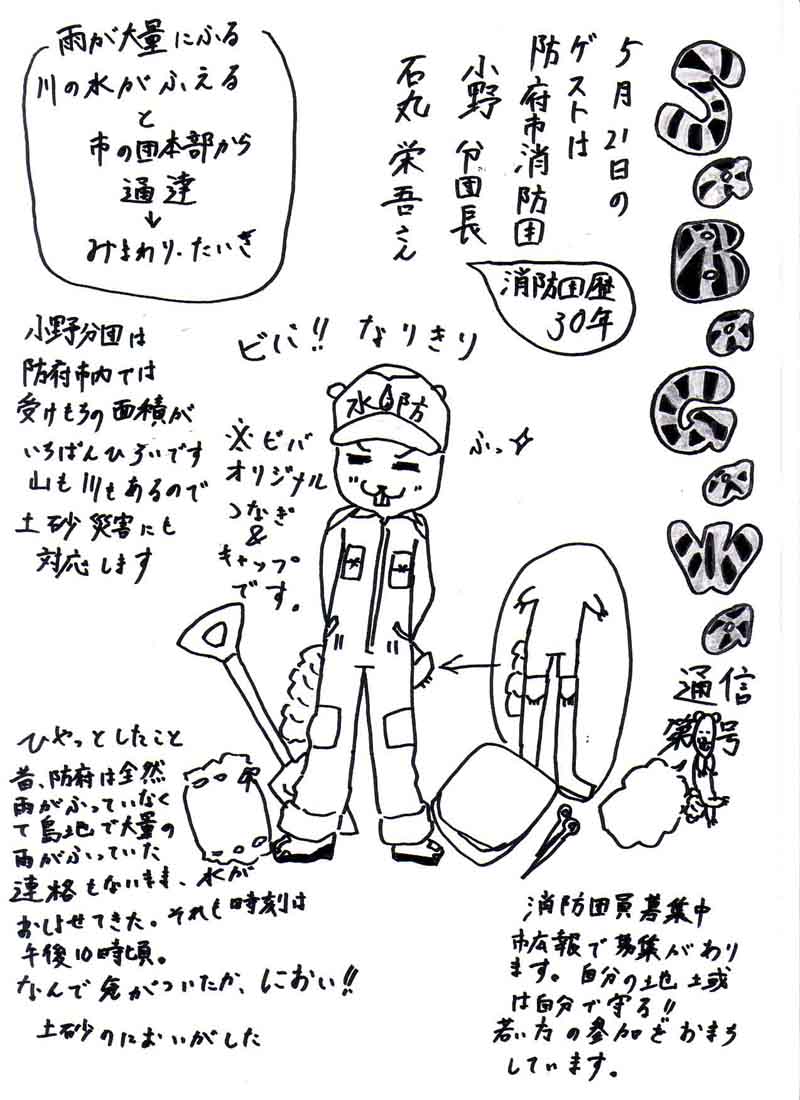 雨が大量にふる
川の水がふえる
と
市の団本部から
通達
↓
みまわり・たいき
5月21日の
ゲストは
防府市消防団
小野分団長
石丸栄吾さん
消防団歴
30年
SaBaGaWa
通信
第 号
小野分団は
防府市内では
受けもちの面積が
いちばんひろいです
山も川もあるので
土砂災害にも
対応します
ビバ!!なりきり
水防
ふっ
※ビバ
オリジナル
つなぎ
&
キャップ
です。
ひやっとしたこと
昔、防府は全然
雨がふっていなく
て島地で大量の
雨がふっていた
連絡もないまま、水が
おしよせてきた。それも時刻は
午後10時頃。
なんで気がついたか、におい!!
土砂のにおいがした
消防団員募集中
市広報で募集がわり
ます。自分の土地 土或
は自分で守る!!
若い方の参加をおまち
しています。